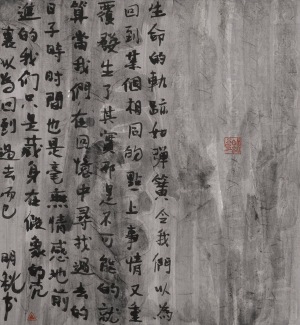 生命的軌跡如彈簧令我們以為
回到某個相同的點上事情又重
覆發生了其實那是不可能的就
算當我們在回憶中尋找過去的
日子時時間也是毫無情感地向前
進的我們只是藏身在假象的
裏以為回到過去而已
明